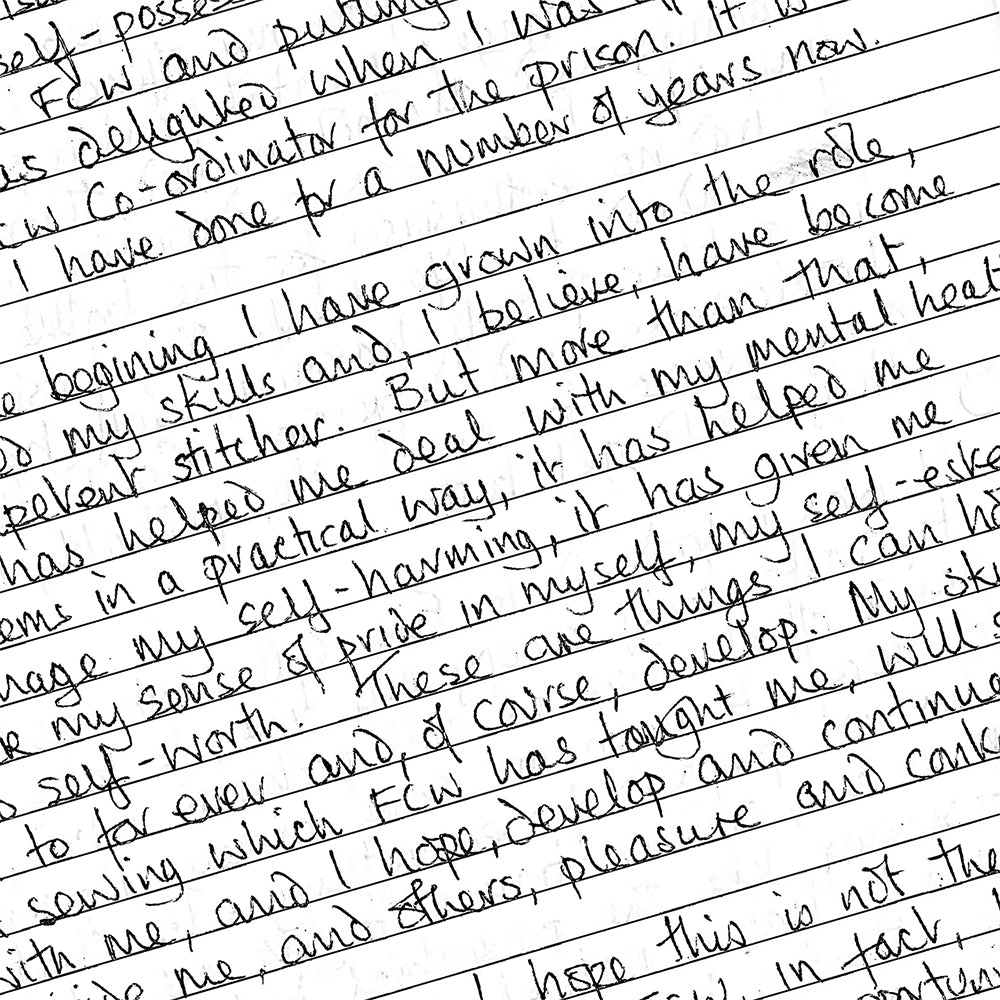 self-possess
FCW and putting
as delighted when I was
Co-ordinator for the prison. It is
I have done for a number of years now.
begining I have grown into the role,
my skills and, I believe, have become
stitcher. But more than that,
has helped me deal with my mental healt
ems in a practical way, it has helped me
nage my self-harming, it has given me
my sense of pride in myself, my self-este
self-worth. These are things I can ho
to for ever and, of course, develop. My ski
sewing which FCW has taught me, will s
with me, and I hope, develop and continue
me, and others, pleasure and
I hope this is not the
FCW. In fact, I